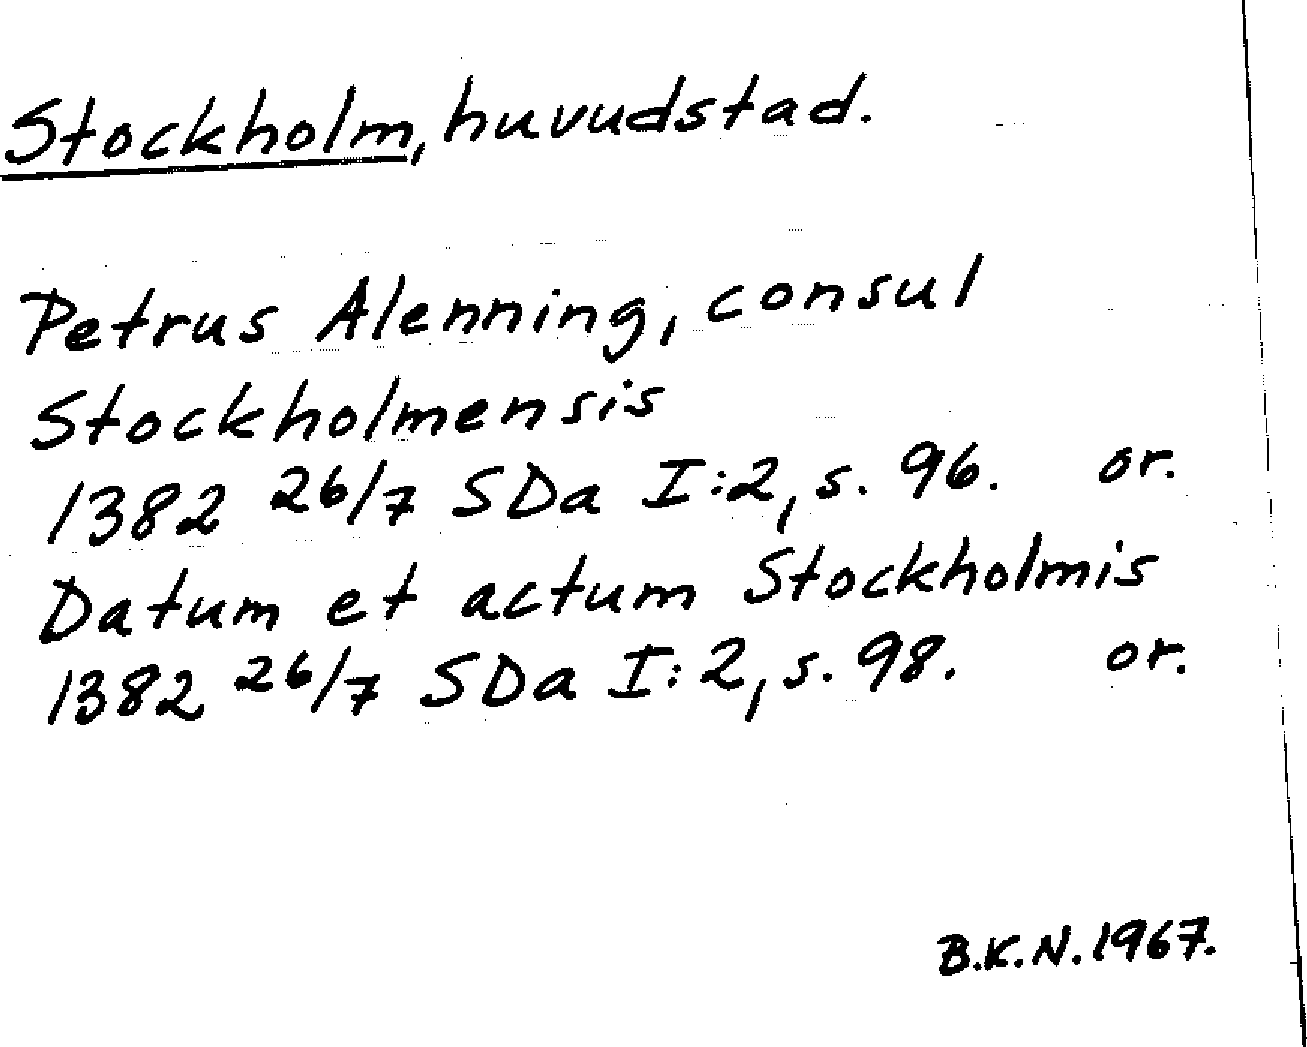 Stockholm, huvudstad.
Petrus Alenning, consul
Stockholmensis
1382 26/7 SDa I:2, s. 96. or.
Datum et actum Stockholmis
1382 26/7 SDa I:2, s. 98. or.
B.K.N. 1967.